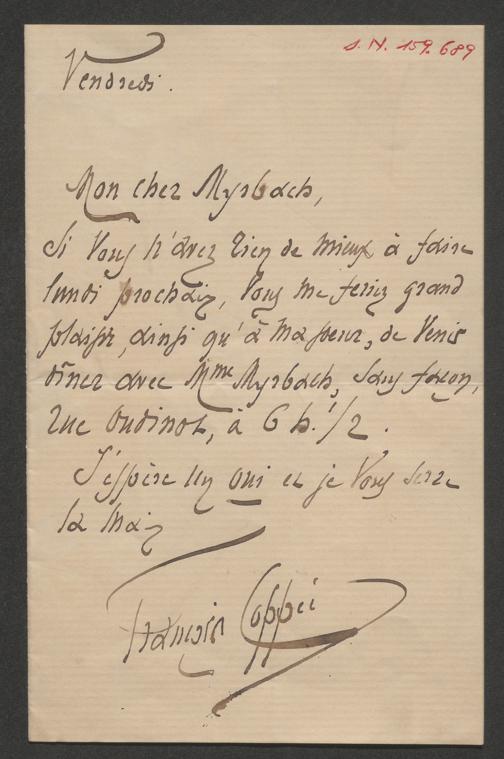 J. N. 159.689
Vendredi.
Mon cher Myrbach,
Si vous n'avez rien de mieux à faire
lundi prochain, vous me feriez grand
plaisir, ainsi qu'à ma soeur, de venir
dîner avec Mme Myrbach, sans façon,
rue Oudinot, à 6 h. 1/2.
J'espère un oui et je vous serre
la main
François Coppée